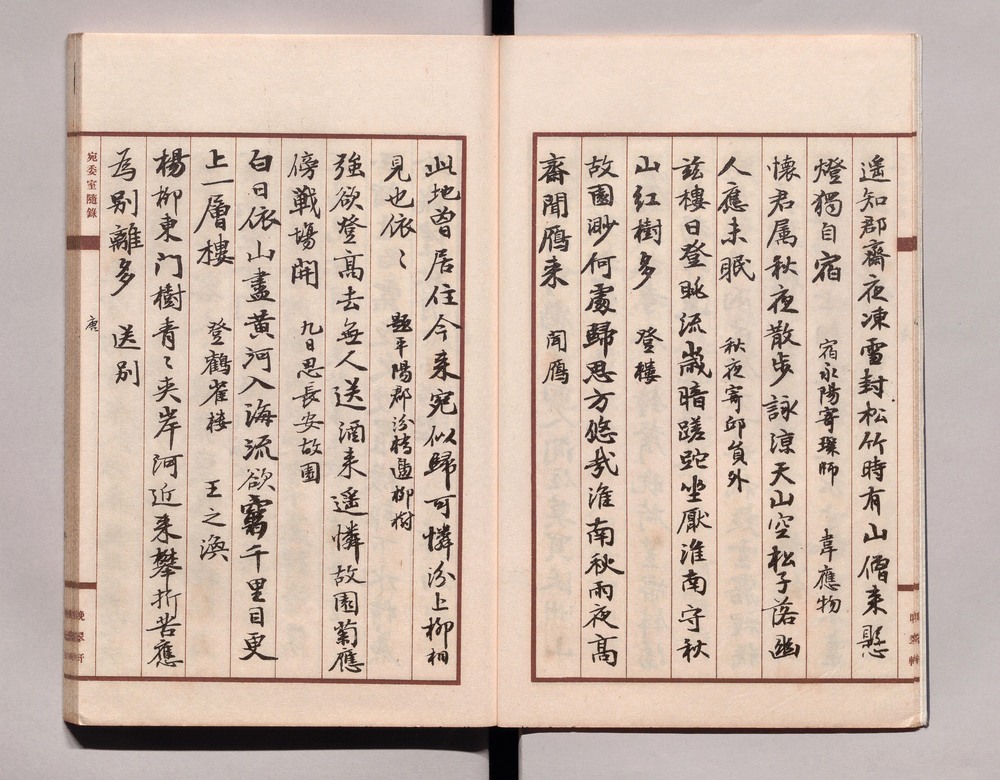 遥知郡齋夜凍雪封松竹時有山僧来懸
燈獨自宿 宿永陽寄璨師 韋應物
懷君属秋夜散步詠涼天山空松子落幽
人應未眠 秋夜寄邱員外
兹樓日登眺流歲暗蹉跎坐厭淮南守秋
山紅樹多 登樓
故園渺何處歸思方悠哉淮南秋雨夜高
齋聞鴈来 聞鴈
此地曽居住今来宛似歸可憐汾上柳相
見也依〻 題平陽郡汾橋邊柳樹
強欲登高去無人送酒来遥憐故園菊應
傍戰場開 九日思長安故園
白日依山盡黄河入海流欲窮千里目更
上一層樓 登鶴雀樓 王之渙
楊柳東门樹青〻夾岸河近来攀折苦應
為别離多 送别
宛委室隨錄
唐
晚翠軒